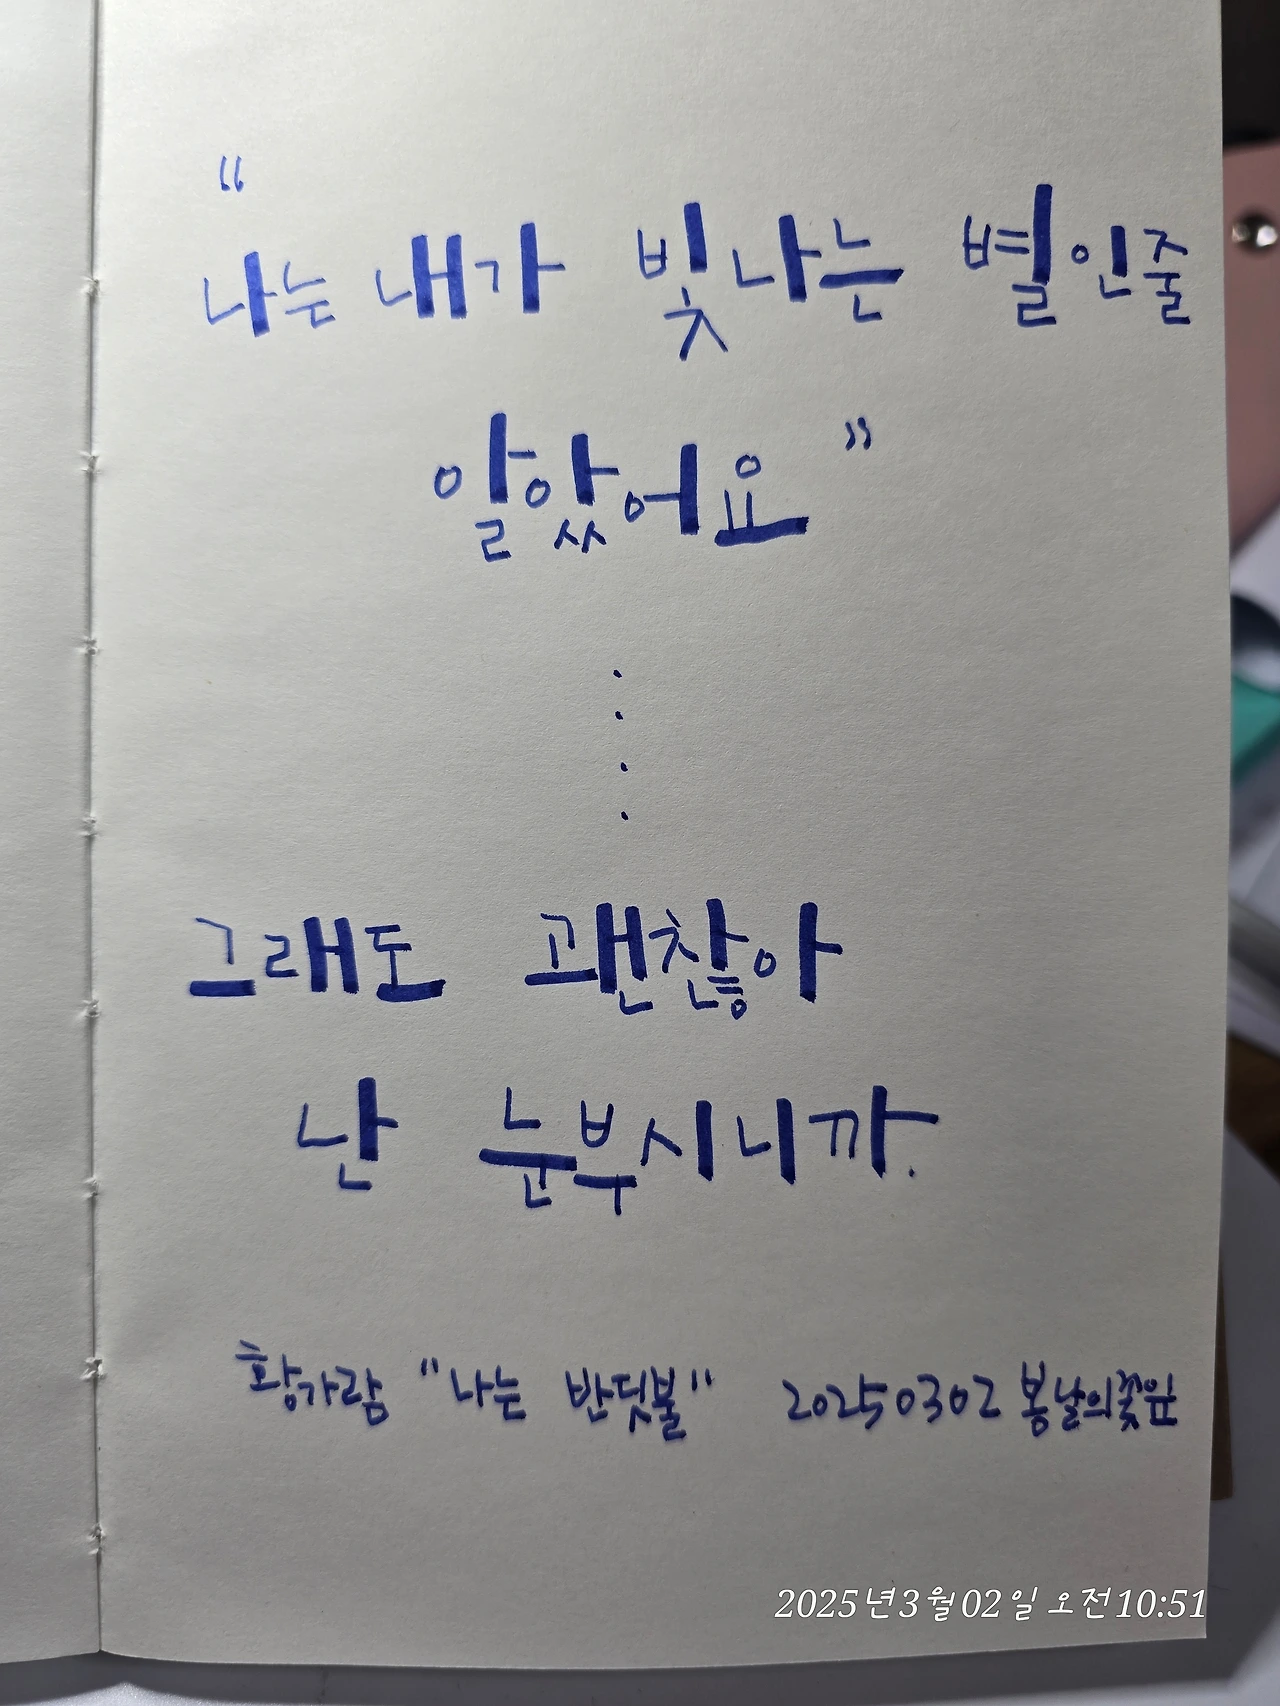 “
나는 내가 빛나는 별인줄
알았어요 ”
그래도 괜찮아
난 눈부시니까.
황가람 "나는 반딧불" 20250302 봄날의꽃잎
2025년3월02일 오전10:51